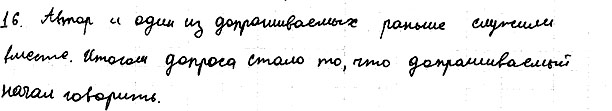 16. Автор и один из допрашиваемых раньше служили
вместе. Итогом допроса стало то, что допрашиваемый
начал говорить.